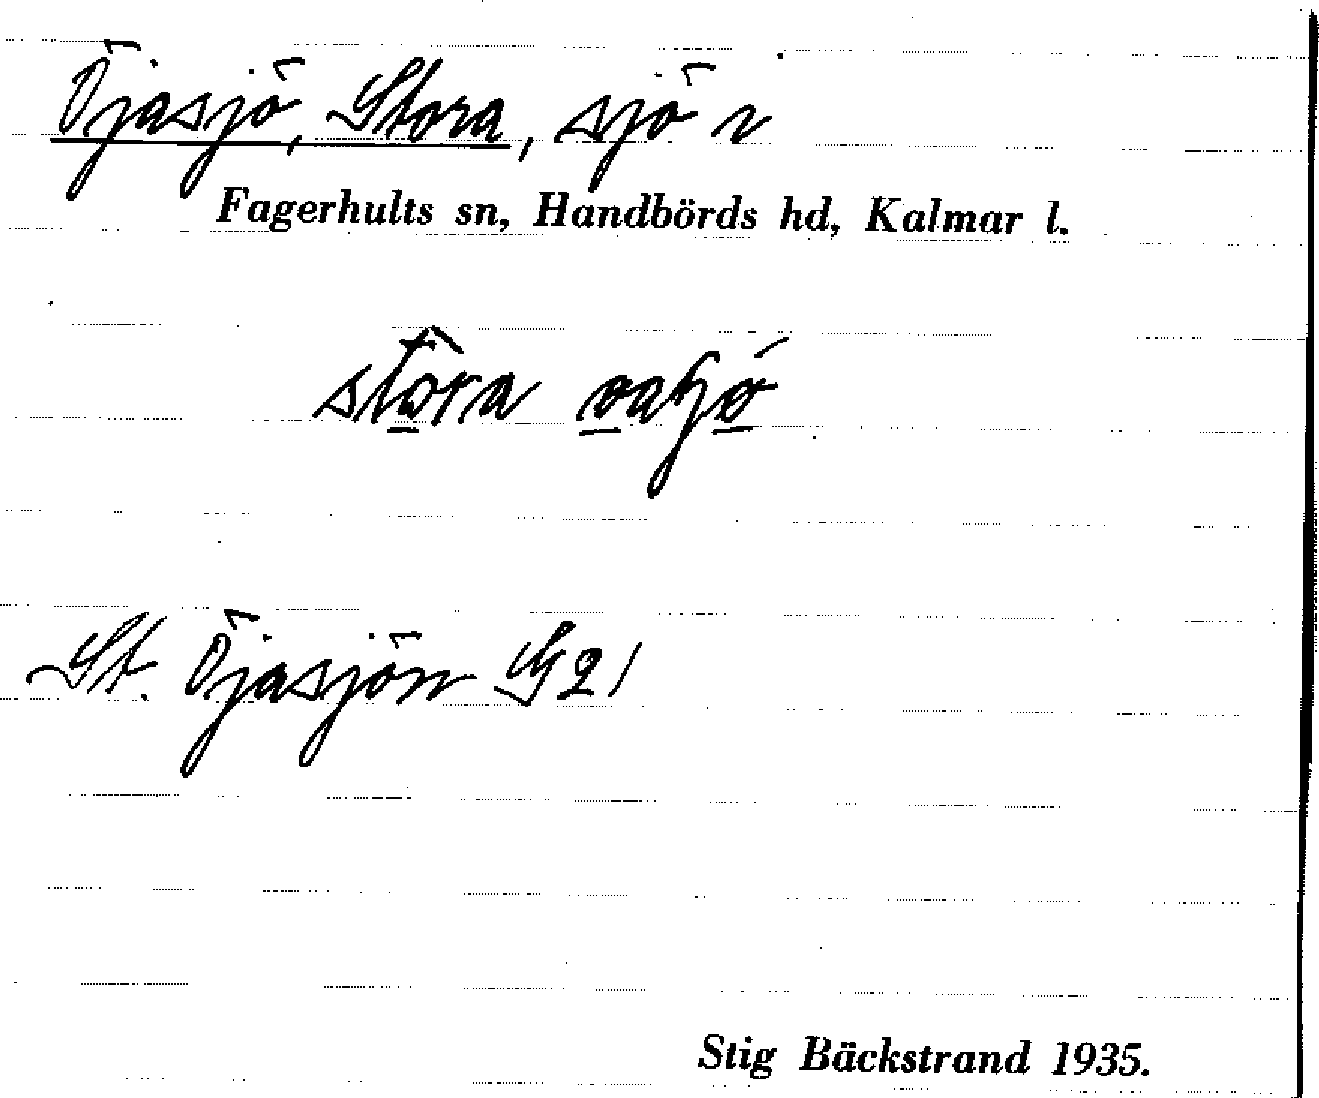 Öjasjö, Stora, sjö i
Fagerhults sn, Handbörds hd, Kalmar l.
stora
St. Öjasjön G21
Stig Bäckstrand 1935.